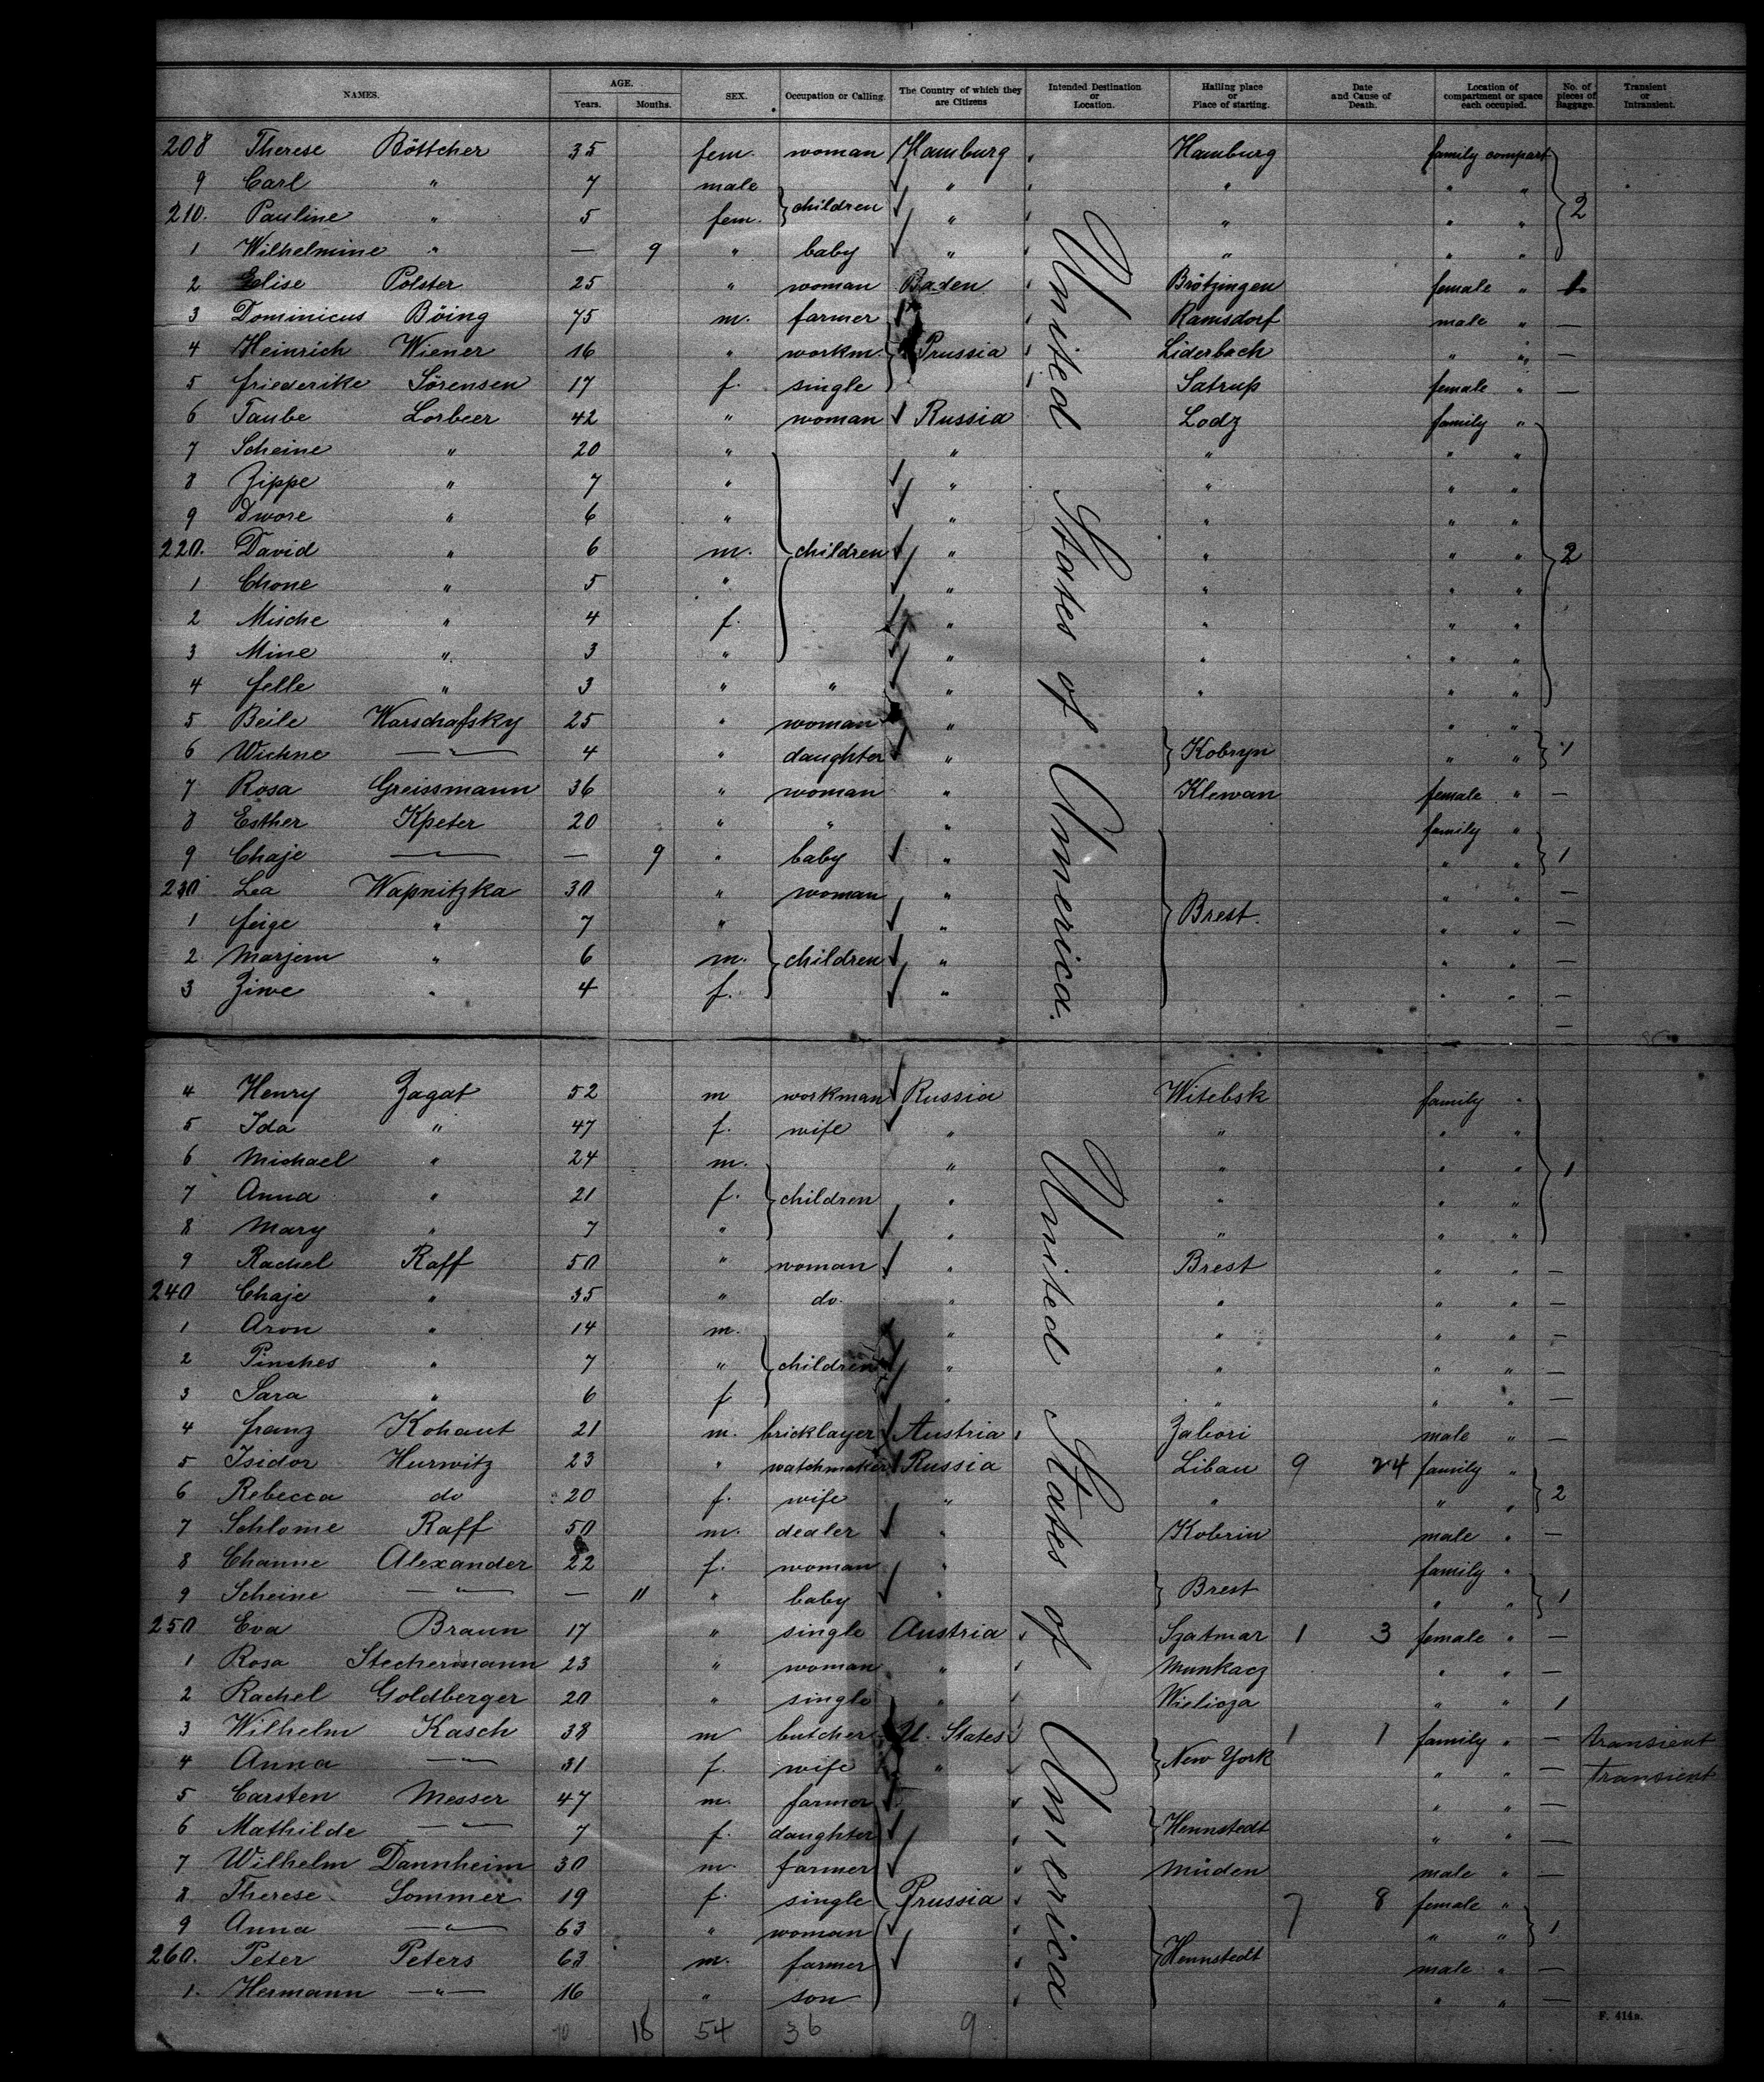 NAMES. AGE. Years. Months. SEX. Occupation or Calling. The Country of which they are Citizens Intended Destination or Location. Hailing place or Place of starting. Date and Cause of Death. Location of compartment or space each occupied. No. of pieces of Baggage. Transient or Intransient.
208 Therese Böttcher 35 fem. woman Hamburg Hamburg family compart
9 Carl " 7 male " " " "
210. Pauline " 5 fem. children " " " " 2
1 Wilhelmine " — 9 " baby " " " "
2 Elise Polster 25 " woman Baden Brötzingen female " 1
3 Dominicus Böing 75 m. farmer Ramsdorf male " —
4 Heinrich Wiener 16 " workm. Prussia Liderbach " " —
5 Friederike Sörensen 17 f. single Satrup female " —
6 Taube Lorbeer 42 " woman Russia Lodz family "
7 Scheine " 20 " " " " "
8 Zippe " 7 " " " " "
9 Dwore " 6 " " " " "
220. David " 6 m. children " " " " 2
1 Chone " 5 " " " " "
2 Mische " 4 f. " " " "
3 Mine " 3 " " " " "
4 Felle " 3 " " " " " "
5 Beile Warschafsky 25 " woman " " "
6 Wichne —"— 4 " daughter " Kobryn " " 1
7 Rosa Greissmann 36 " woman " Klewan female " —
8 Esther Kpeter 20 " " " family "
9 Chaje — — 9 " baby " " " 1
230 Lea Wapnitzka 30 " woman " " " —
1 Feige " 7 " " Brest. " " —
2 Marjem " 6 m. children " " " —
3 Ziwe " 4 f. " " " —
—
4 Henry Zagat 52 m workman Russia Witebsk family "
5 Ida " 47 f. wife " " " "
6 Michael " 24 m. " " " " 1
7 Anna " 21 f. children " " " "
8 Mary " 7 " " " " "
9 Rachel Raff 50 " woman " Brest " " —
240 Chaje " 35 " do. " " " " —
1 Aron " 14 m. " " " " —
2 Pinches " 7 " children " " " " —
3 Sara " 6 f " " " " —
4 Franz Kohaut 21 m. bricklayer Austria Zabori male " —
5 Isidor Hurwitz 23 " watchmaker Russia Libau 9 24 family "
6 Rebecca do 20 f. wife " " " " 2
7 Schlome Raff 50 m. dealer " Kobrin male " —
8 Channe Alexander 22 f. woman " family "
9 Scheine —"— — 11 " baby " Brest " " 1
250 Eva Braun 17 " single Austria Szatmar 1 3 female " —
1 Rosa Stechermann 23 " woman " Munkacz " " —
2 Rachel Goldberger 20 " single " Wielioza " " 1
3 Wilhelm Kasch 38 m butcher U. States 1 1 family " — transient
4 Anna —"— 31 f. wife " New York " " — transient
5 Carsten Messer 47 m. farmer " " —
6 Mathilde —"— 7 f. daughter Hennstedt " " —
7 Wilhelm Dannheim 30 m. farmer Müden male " —
8 Therese Sommer 19 f. single Prussia 7 8 female "
9 Anna —"— 63 " woman " " 1
260. Peter Peters 63 m. farmer Hennstedt male " —
1. Hermann —"— 16 " son " " —
United States of America.
United States of America
18 54 36 9
F. 414a.